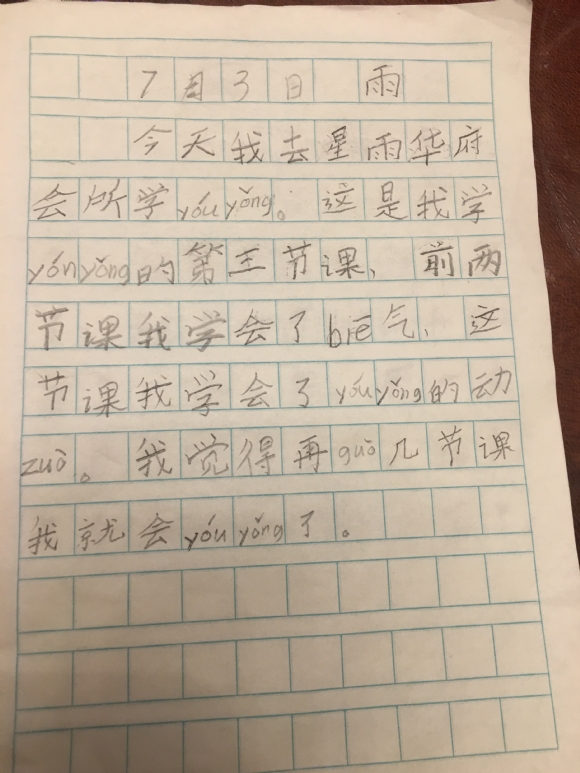 7月3日 雨
今天我去星雨华府
会所学yóuyǒng。这是我学
yóuyǒng的第三节课、前两
节课我学会了biē气、这
节课我学会了yóuyǒng的动
zuò。我觉得再guò几节课
我就会yóuyǒng了。